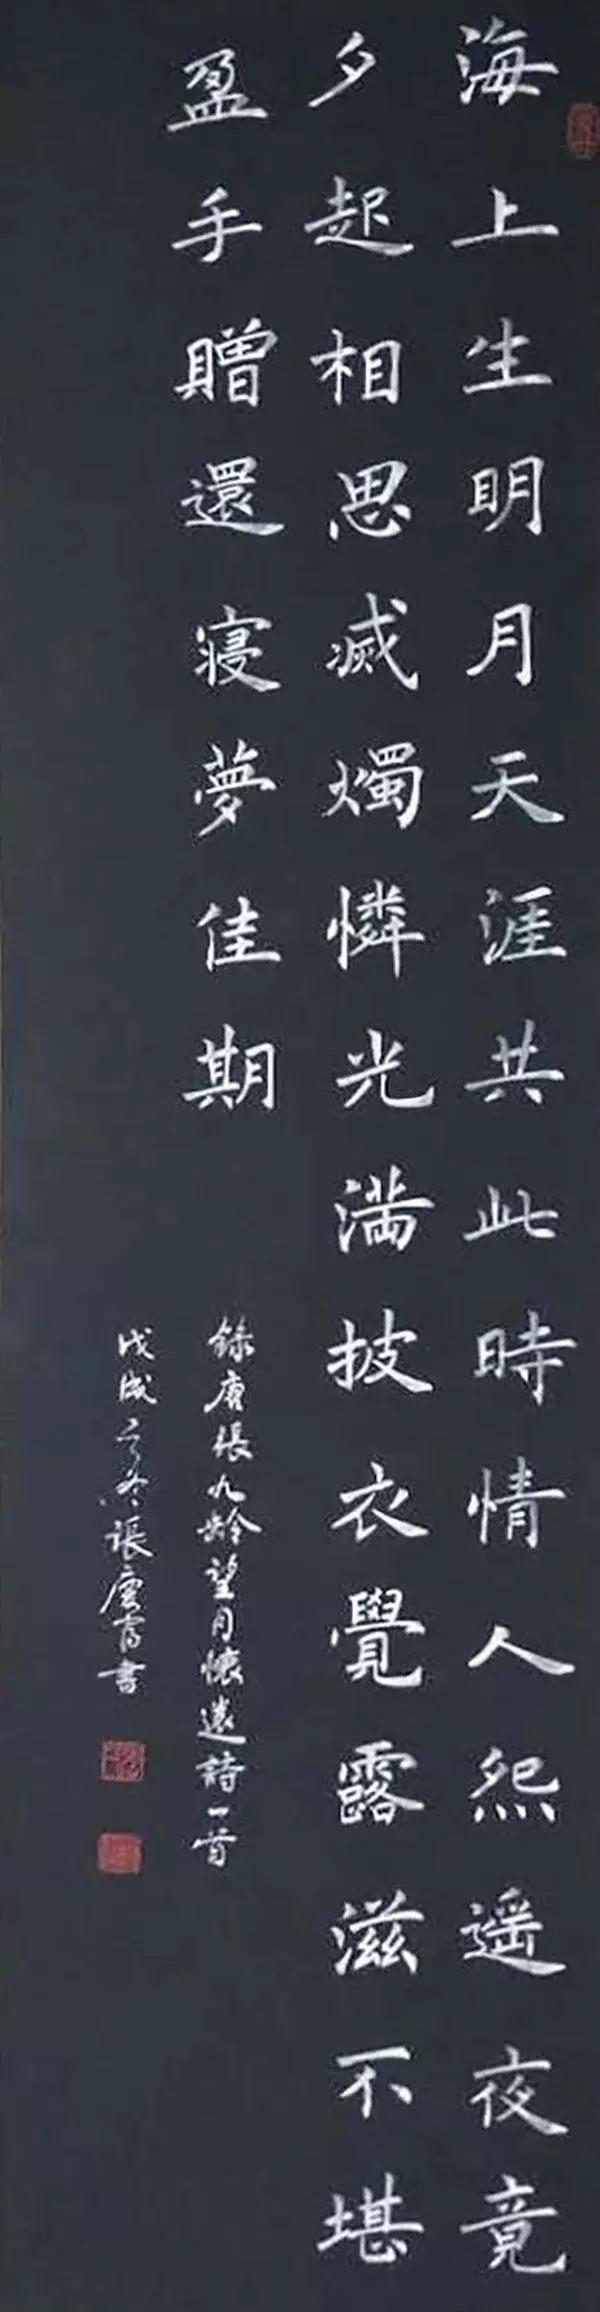 海上生明月天涯共此時情人怨遥夜竟
夕起相思滅燭憐光滿披衣覺露滋不堪
盈手贈還寢夢佳期
録唐張九齡望月懷遠詩一首
戊戌之冬張書